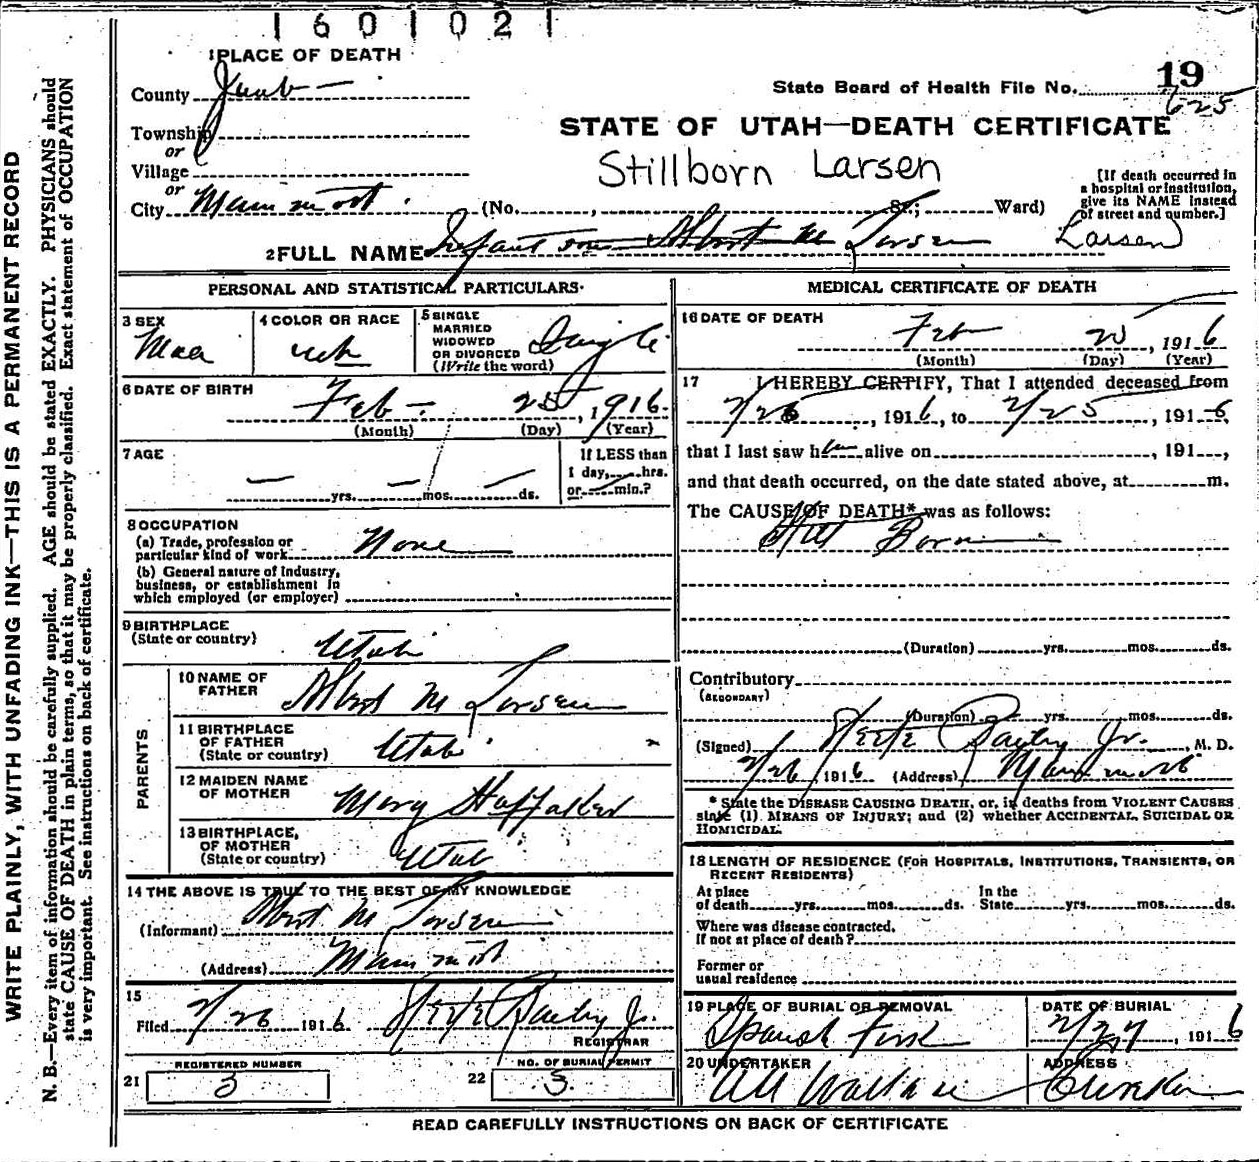 1601021
1 PLACE OF DEATH
County Juab
Township
or
Village
or
City Mammoth
(No. , St.; Ward)
State Board of Health File No. 19
625
STATE OF UTAH—DEATH CERTIFICATE
Stillborn Larsen
[If death occurred in
a hospital or institution,
give its NAME instead
of street and number.]
2 FULL NAME Infant son Albert M Larsen Larsen
PERSONAL AND STATISTICAL PARTICULARS
3 SEX
4 COLOR OR RACE
5 SINGLE
MARRIED
WIDOWED
OR DIVORCED
(Write the word)
Single
6 DATE OF BIRTH
Feb 25, 1916
(Month) (Day) (Year)
7 AGE
— yrs. — mos. — ds.
If LESS than
1 day, hrs.
or min.?
8 OCCUPATION
(a) Trade, profession or
particular kind of work None
(b) General nature of Industry,
business, or establishment in
which employed (or employer)
9 BIRTHPLACE
(State or country) Utah
PARENTS
10 NAME OF
FATHER Albert M Larsen
11 BIRTHPLACE
OF FATHER
(State or country) Utah
12 MAIDEN NAME
OF MOTHER Mary Huffaker
13 BIRTHPLACE,
OF MOTHER
(State or country) Utah
14 THE ABOVE IS TRUE TO THE BEST OF MY KNOWLEDGE
(Informant) Albert M Larsen
(Address) Mammoth
15
Filed 2/26 1916 Steele Bailey Jr.
REGISTRAR
REGISTERED NUMBER
21 3
NO. OF BURIAL PERMIT
22 3
MEDICAL CERTIFICATE OF DEATH
16 DATE OF DEATH
Feb 25, 1916
(Month) (Day) (Year)
17 I HEREBY CERTIFY, That I attended deceased from
2/25, 1916, to 2/25, 1916,
that I last saw h alive on , 191 ,
and that death occurred, on the date stated above, at m.
The CAUSE OF DEATH* was as follows:
Still Born
(Duration) yrs. mos. ds.
Contributory
(SECONDARY)
(Duration) yrs. mos. ds.
(Signed) Steele Bailey Jr., M. D.
2/26, 1916 (Address) Mammoth
* State the DISEASE CAUSING DEATH, or, in deaths from VIOLENT CAUSES
state (1) MEANS OF INJURY; and (2) whether ACCIDENTAL, SUICIDAL OR
HOMICIDAL.
18 LENGTH OF RESIDENCE (FOR HOSPITALS, INSTITUTIONS, TRANSIENTS, OR
RECENT RESIDENTS)
At place
of death yrs. mos. ds.
In the
State yrs. mos. ds.
Where was disease contracted,
if not at place of death?
Former or
usual residence
19 PLACE OF BURIAL OR REMOVAL
Spanish Fork
DATE OF BURIAL
2/27, 1916
20 UNDERTAKER
Wallace
ADDRESS
Eureka
READ CAREFULLY INSTRUCTIONS ON BACK OF CERTIFICATE
WRITE PLAINLY, WITH UNFADING INK—THIS IS A PERMANENT RECORD
N. B.—Every item of information should be carefully supplied. AGE should be stated EXACTLY. PHYSICIANS should
state CAUSE OF DEATH in plain terms, so that it may be properly classified. Exact statement of OCCUPATION
is very important. See instructions on back of certificate.